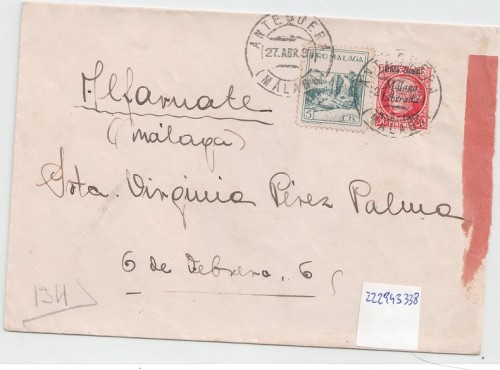 ANTEQUERA
27.ABR.
(MALAGA)
PRO MÁLAGA
5 CTS
Málaga
liberada
Alfarnate
(Málaga)
Srta. Virginia Pérez Palma
6 de Febrero, 6
1311
222943338